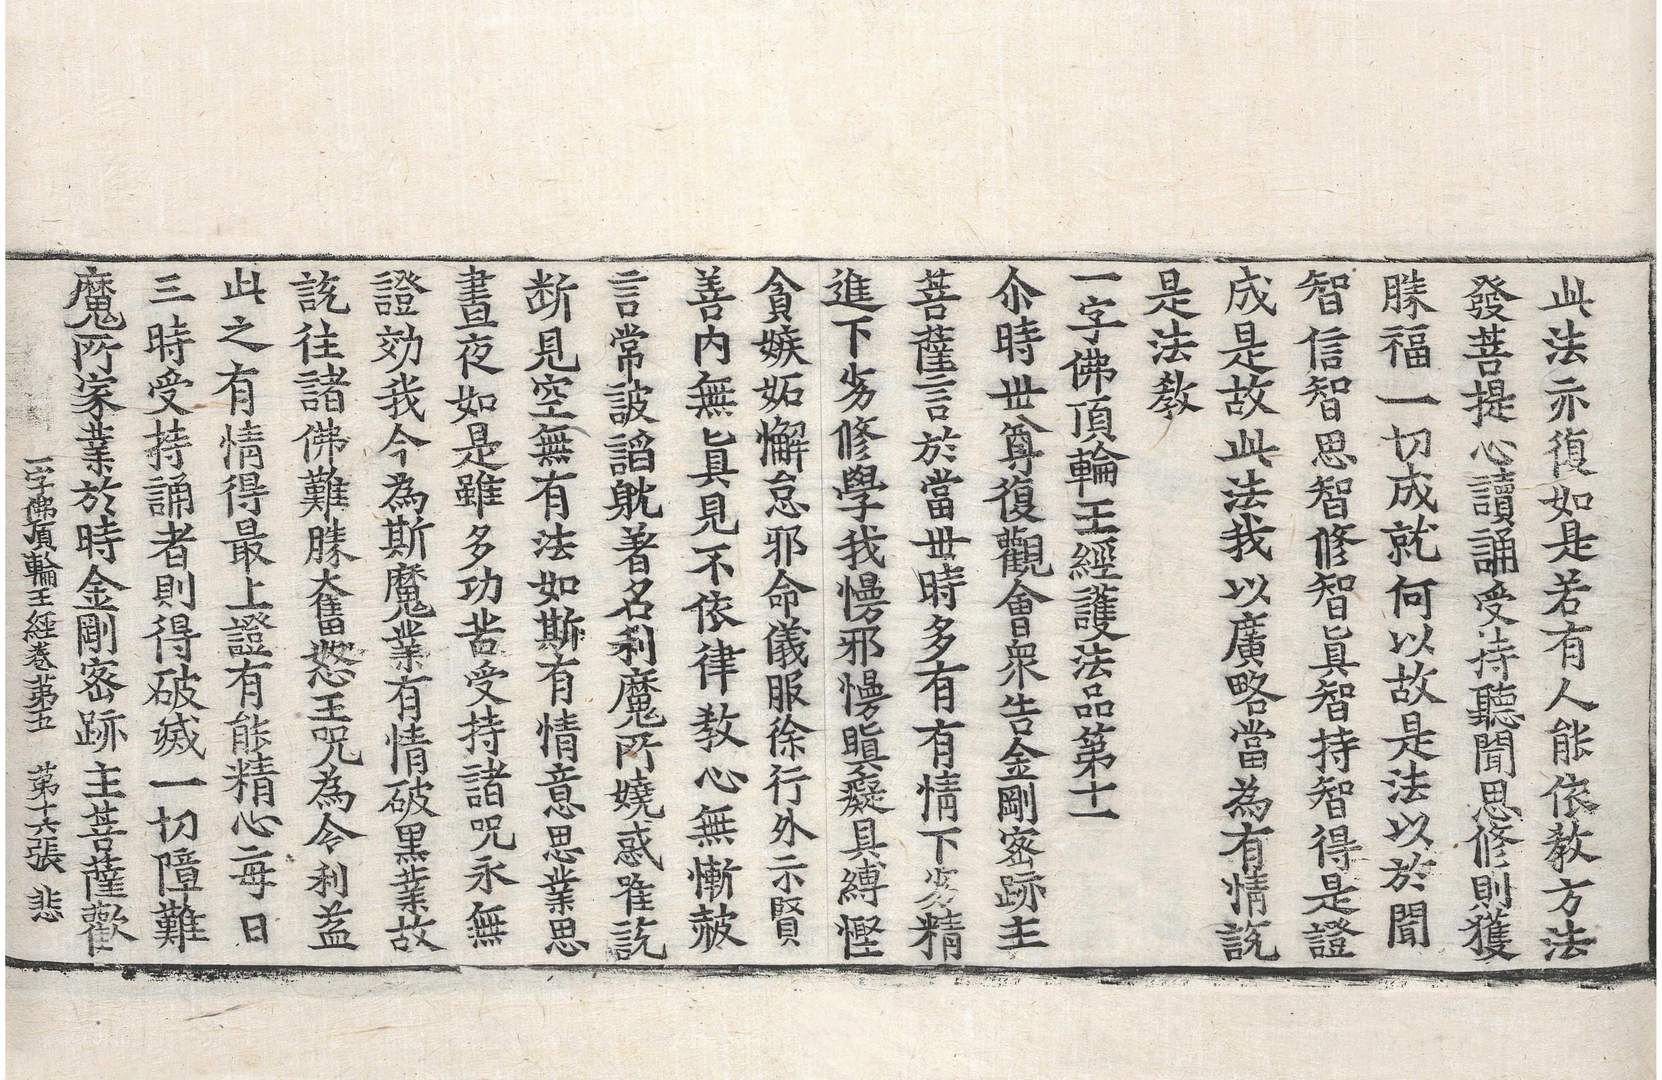 此法示復如是若有人能依教方法
發菩提心讀誦受持聽聞思修則獲
勝福一切成就何以故是法以於聞
智信智思智修智眞智持智得是證
成是故此法我以廣略當為有情說
是法教
一字佛頂輪王經護法品第十一
尒時世尊復觀會衆告金剛密跡主
菩薩言於當世時多有有情下劣精
進下劣修學我慢邪慢瞋癡具縛慳
貪嫉妬懈怠邪命儀服徐行外示賢
善内無眞見不依律教心無慚赧
言常詖謟躭著名利魔所嬈惑唯說
断見空無有法如斯有情意思業思
晝夜如是雖多功苦受持諸咒永無
證効我今為斯魔業有情破黑業故
說徃諸佛難勝大奮怒王咒為令利益
此之有情得最上證有能精心每日
三時受持誦者則得破滅一切障難
魔所家業於時金剛密跡主菩薩歡
一字佛頂輪王經卷苐五　苐十六張　悲